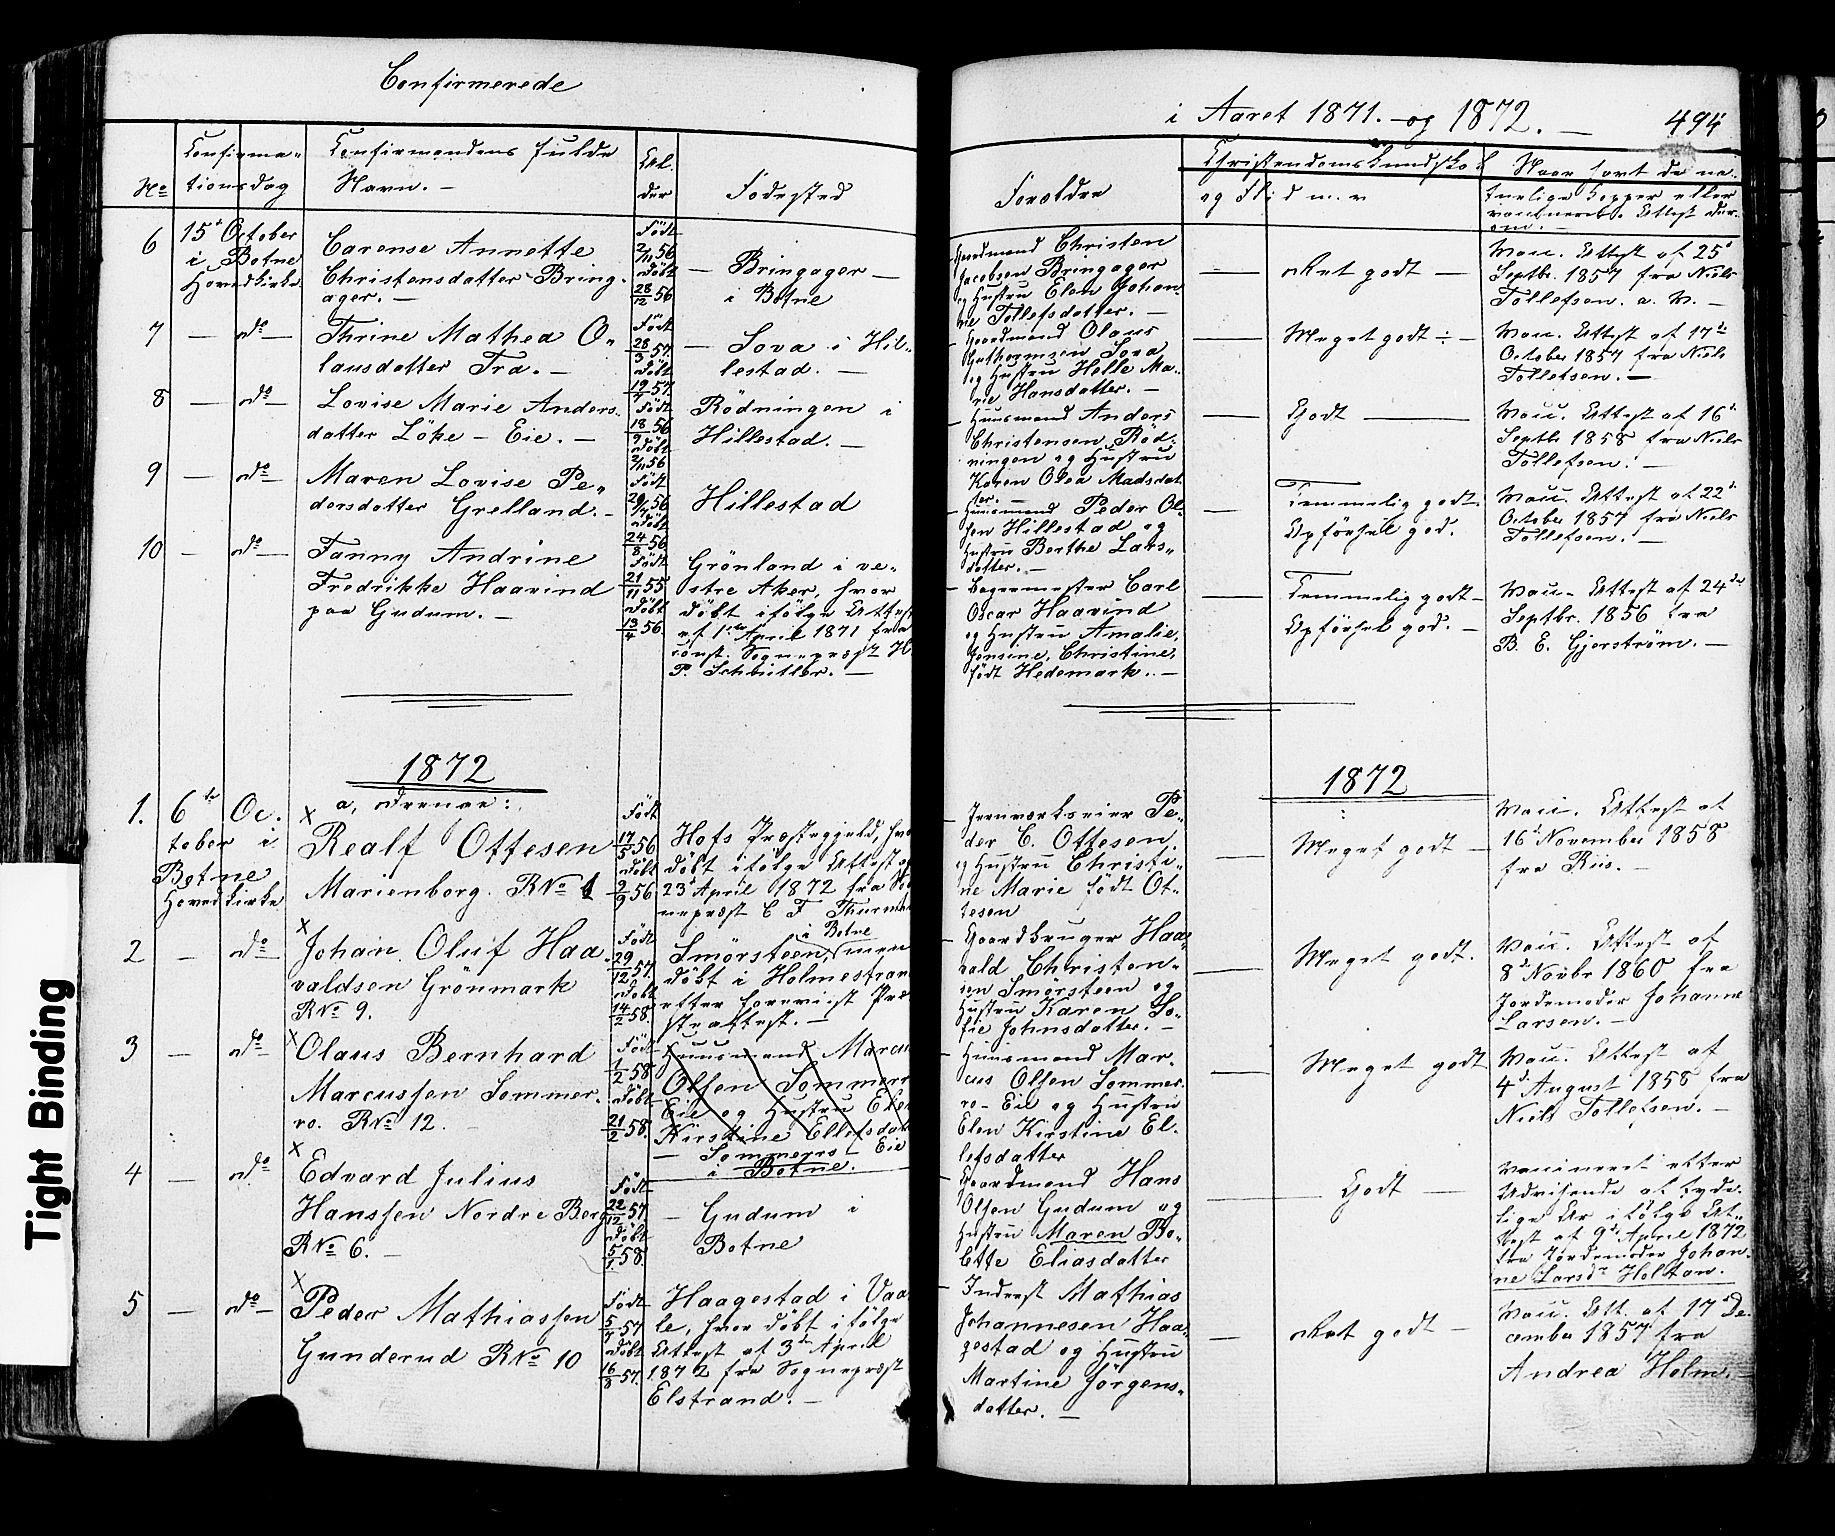 Confirmerede
i Aaret 1871. og 1872. —
494
No
Confirma-
tionsdag
Confirmandens fulde
Navn. —
Al-
der
Fødested
Forældre
Christendomskundskab
og Flid m. v
Naar havt de na-
turlige Kopper eller
vaccineret. Attest der-
om. —
6
15de October
i Botne
Hovedkirke
Carense Annette
Christensdatter Bring-
ager. —
Født
2/11 56
Døbt
28/12 56
— Bringager —
i Botne
Gaardmand Christen
Jacobsen Bringager
og Hustru Elen Johan-
ne Tollefsdatter. —
— Ret godt —
Vacc. Attest af 25d
Septbr. 1857 fra Niels
Tollefsen. a. V. —
7 — do —
Thrine Mathea O-
lausdatter Fra. —
Født
28/3 57.
Døbt
19/4 57.
— Sova i Hil-
lestad. —
Gaardmand Olaus
Guthormsen Sova
og Hustru Helle Ma-
rie Hansdatter. —
— Meget godt ÷ —
Vacc. Attest af 17de
October 1857 fra Niels
Tollefsen. —
8 — do —
Lovise Marie Anders-
datter Löke - Eie. —
Født
18/9 56
Døbt
2/11 56
Rödningen i
Hillestad. —
— Huusmand Anders
Christensen Röd-
ningen og Hustru
Karen Olea Madsdat-
ter. —
— Godt —
Vacc. Attest af 16d
Septbr 1858 fra Niels
Tollefsen. —
9 — do —
Maren Lovise Pe-
dersdatter Grelland. —
Født
29/7 56
Døbt
24/8 56
Hillestad
— Huusmand Peder Ol-
sen Hillestad og
Hustru Berthe Lars-
datter. —
— Temmelig godt.
Opførsel god.
Vacc. Attest af 22d
October 1857 fra Niels
Tollefsen. —
10 — do —
Fanny Andrine
Fredrikke Haavind
paa Gudum. —
Født
21/11 55
Døbt
13/4 56.
Grönland i ve-
stre Aker, hvor
døbt ifølge Attest
af 1ste April 1871 fra
const. Sognepræst H.
P. Schnitler. —
— Bagermester Carl
Oscar Haavind
og Hustru Amalie,
Jensine, Christine,
født Hedemark. —
— Temmelig godt —
Opførsel god. —
Vacc. Attest af 24de
Septbr. 1856 fra
B. E. Gjerström. —
1872
1872
a, Drenge:
1.
6te Oc-
tober i
Botne
Hovedkirke
×
Realf Ottesen
Marienborg. RNo 1
Født
17/5 56
Døbt
2/9 56
Hofs Præstegjeld, hvor
døbt ifølge Attest af
23d April 1872 fra Sog-
nepræst C F Thurman
Jernværkseier Pe-
der C. Ottesen
og Hustru Christi-
ne Marie født Ot-
tesen
— Meget godt —
Vacc. Attest af
16d November 1858
fra Riis. —
2 do
×
Johan Oluf Haa-
valdsen Grönmark
RNo 9.
Født
29/12 57.
Døbt
14/2 58.
i Botne
Smörsteen, men
døbt i Holmestrand
efter foreviist Præ-
steattest. —
— Gaardbruger Haa-
vald Christen-
sen Smörsteen og
Hustru Karen So-
fie Johnsdatter. —
— Meget godt.
Vacc. Attest af
8d Novbr 1860 fra
Jordemoder Johanne
Larsen. —
3 — do —
×
Olaus Bernhard
Marcussen Sommer-
ro. RNo 12.
Født
1/2 58
Døbt
21/2 58.
Huusmand Marcus
Olsen Sommerro
Eie og Hustru Elen
Kirstine Ellefsdatter
— Sommerro Eie
i Botne.
— Huusmand Mar-
cus Olsen Sommer-
ro - Eie og Hustru
Elen Kirstine El-
lefsdatter
— Meget godt
Vacc. Attest af
4d August 1858 fra
Niels Tollefsen. —
4 — do
×
Edvard Julius
Hanssen Nordre Berg
RNo 6. —
Født
22/12 57.
Døbt
5/1 58.
— Gudum i
Botne
— Gaardmand Hans
Olsen Gudum og
Hustru Maren Bo-
lette Eliasdatter
— Godt —
Vaccineret efter
Udvisende af tyde-
lige Ar ifølge At-
test af 9d April 1872
fra Jordemoder Johan-
ne Larsdr Holtan.
5 — do —
×
Peder Mathiassen
Gunderud RNo 10
Født
5/7 57
Døbt
16/8 57.
Haagestad i Vaa-
le, hvor døbt ifølge
Attest af 3die April
1872 fra Sognepræst
Elstrand. —
— Inderst Mathias
Johannesen Haa-
gestad og Hustru
Martine Jörgens-
datter. —
— Ret godt —
Vacc. Att. af 17d De-
cember 1857 fra
Andrea Holm. —
Tight Binding